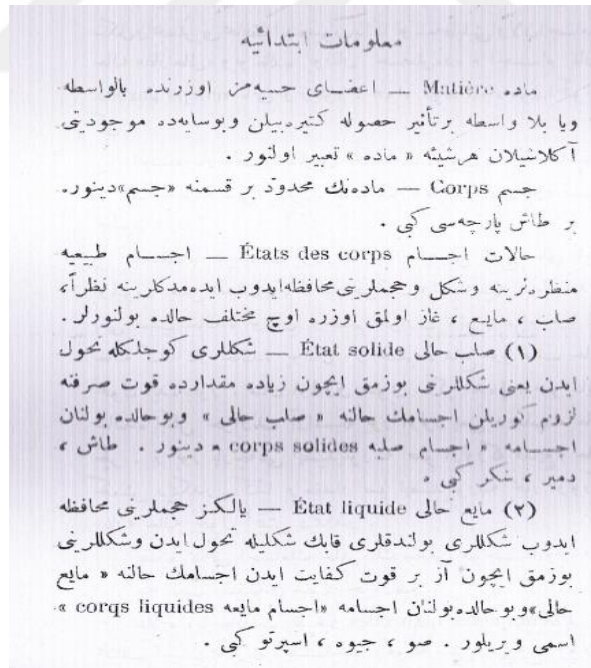 معلومات ابتدائیه
ماده Matière — اعضـای حسیه‌مز اوزرنده بالواسطه
ویا بلا واسطه برتأثیر حصوله کتیره‌بیلن وبوسایه‌ده موجودیتی
آکلاشیلان هرشیئه « ماده » تعبیر اولنور .
جسم Corps — ماده‌نك محدود بر قسمنه «جسم» دینور.
بر طاش پارچه‌سی کبی .
حالات اجسام États des corps — اجسام طبیعیه
منظره‌لرینه وشکل وحجملرینی محافظه ایدوب ایده‌مدکلرینه نظراً،
صلب ، مایع ، غاز اولمق اوزره اوچ مختلف حالده بولنورلر.
(١) صلب حالی État solide — شکللری کوجلکله تحول
ایدن یعنی شکللرینی بوزمق ایچون زیاده مقدارده قوت صرفنه
لزوم کوریلن اجسامك حالنه « صلب حالی » وبوحالده بولنان
اجسامه « اجسام صلبه corps solides » دینور . طاش ،
دمیر ، شکر کبی .
(٢) مایع حالی État liquide — یالکز حجملرینی محافظه
ایدوب شکللری بولندقلری قابك شکلیله تحول ایدن وشکللرینی
بوزمق ایچون آز بر قوت کفایت ایدن اجسامك حالنه « مایع
حالی» وبو حالده بولنان اجسامه «اجسام مایعه corqs liquides »
اسمی ویریلور . صو ، جیوه ، اسپرتو کبی .